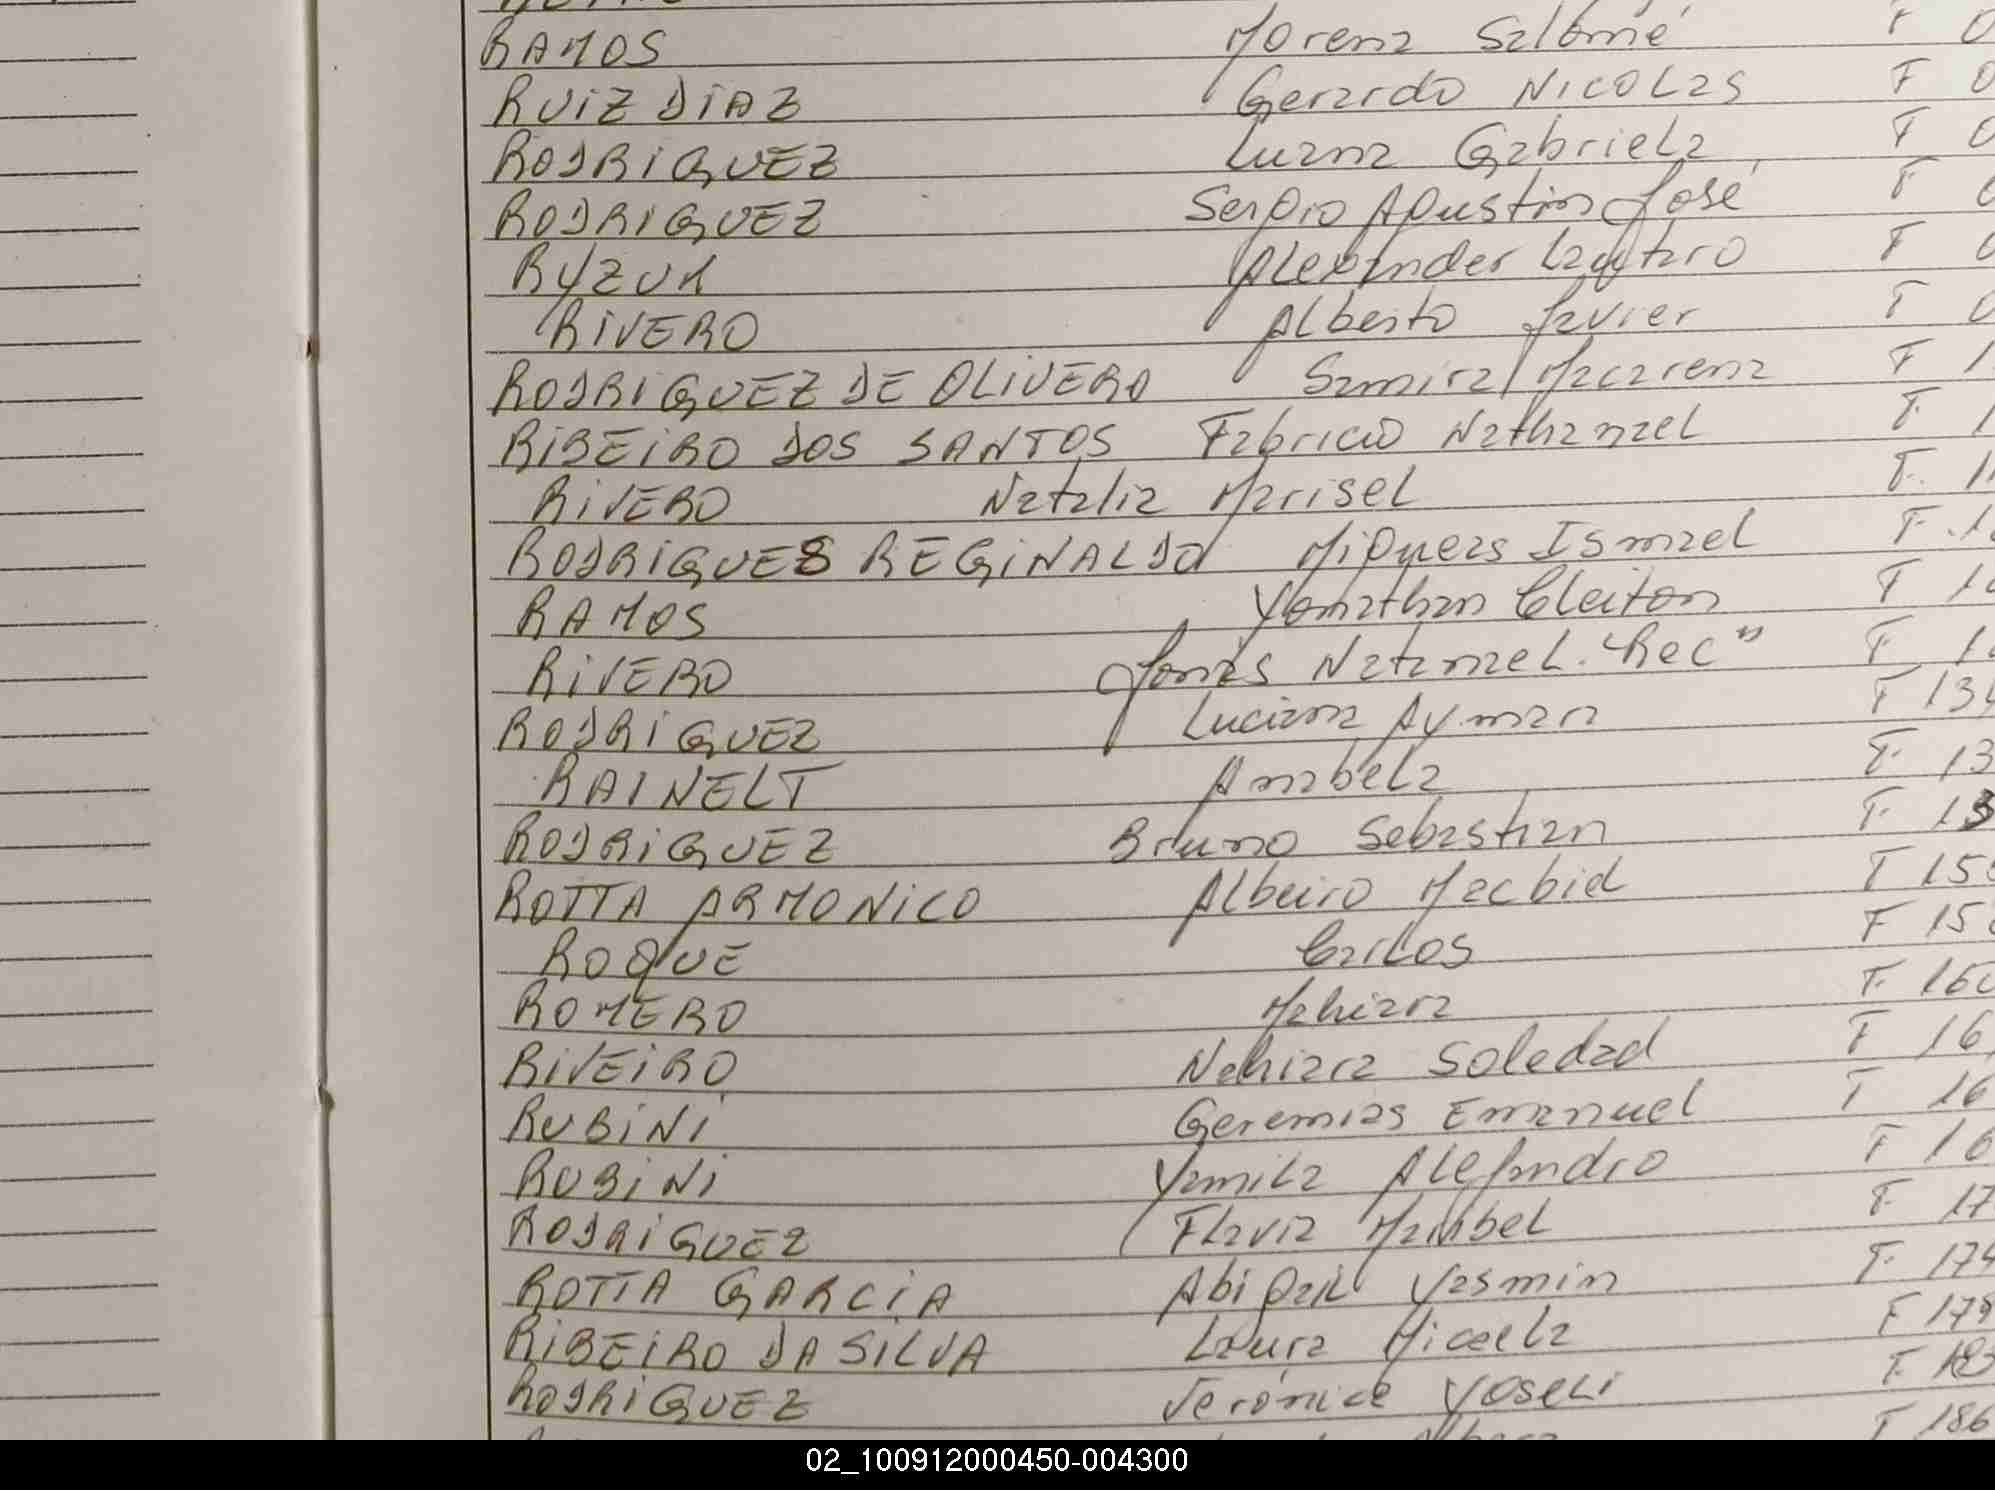 RAMOS Morena Salomé F 0
RUiZ DiAZ Gerardo Nicolas F 0
RODRiGUEZ Luana Gabriela F 0
RODRIGUEZ Sergio Agustin José F 0
RYZUK Alexander Lautaro F 0
RiVERO Alberto Javier F 0
RODRIGUEZ DE OLiVERA Samira Macarena F 1
RiBEiRO DOS SANTOS Fabricio Nathanael F. 1
RiVERO Natalia Marisel F. 1
RODRiGUES REGiNALDO Miqueas Ismael F. 1
RAMOS Yonathan Cleiton F 1
RiVERO Jonás Natanael. "Rec" F 1
RODRiGUEZ Luciana Aymara F 13
RAINELT Anabela F. 13
RODRiGUEZ Bruno Sebastian F. 13
ROTTA ARMONiCO Albeiro Macbiel F 15
ROQUE Carlos F 15
ROMERO Mahiara F. 160
RiVEiRO Nahiara Soledad F 16
RUBiNi Geremias Emanuel F 16
RUBiNi Yamila Alejandro F 16
RODRiGUEZ Flavia Maribel F. 17
ROTTA GARCiA Abigail Yasmin F. 174
RiBEiRO DA SiLVA Laura Micaela F 179
RODRiGUEZ Verónica Yoseli F. 183
F 186
02_100912000450-004300